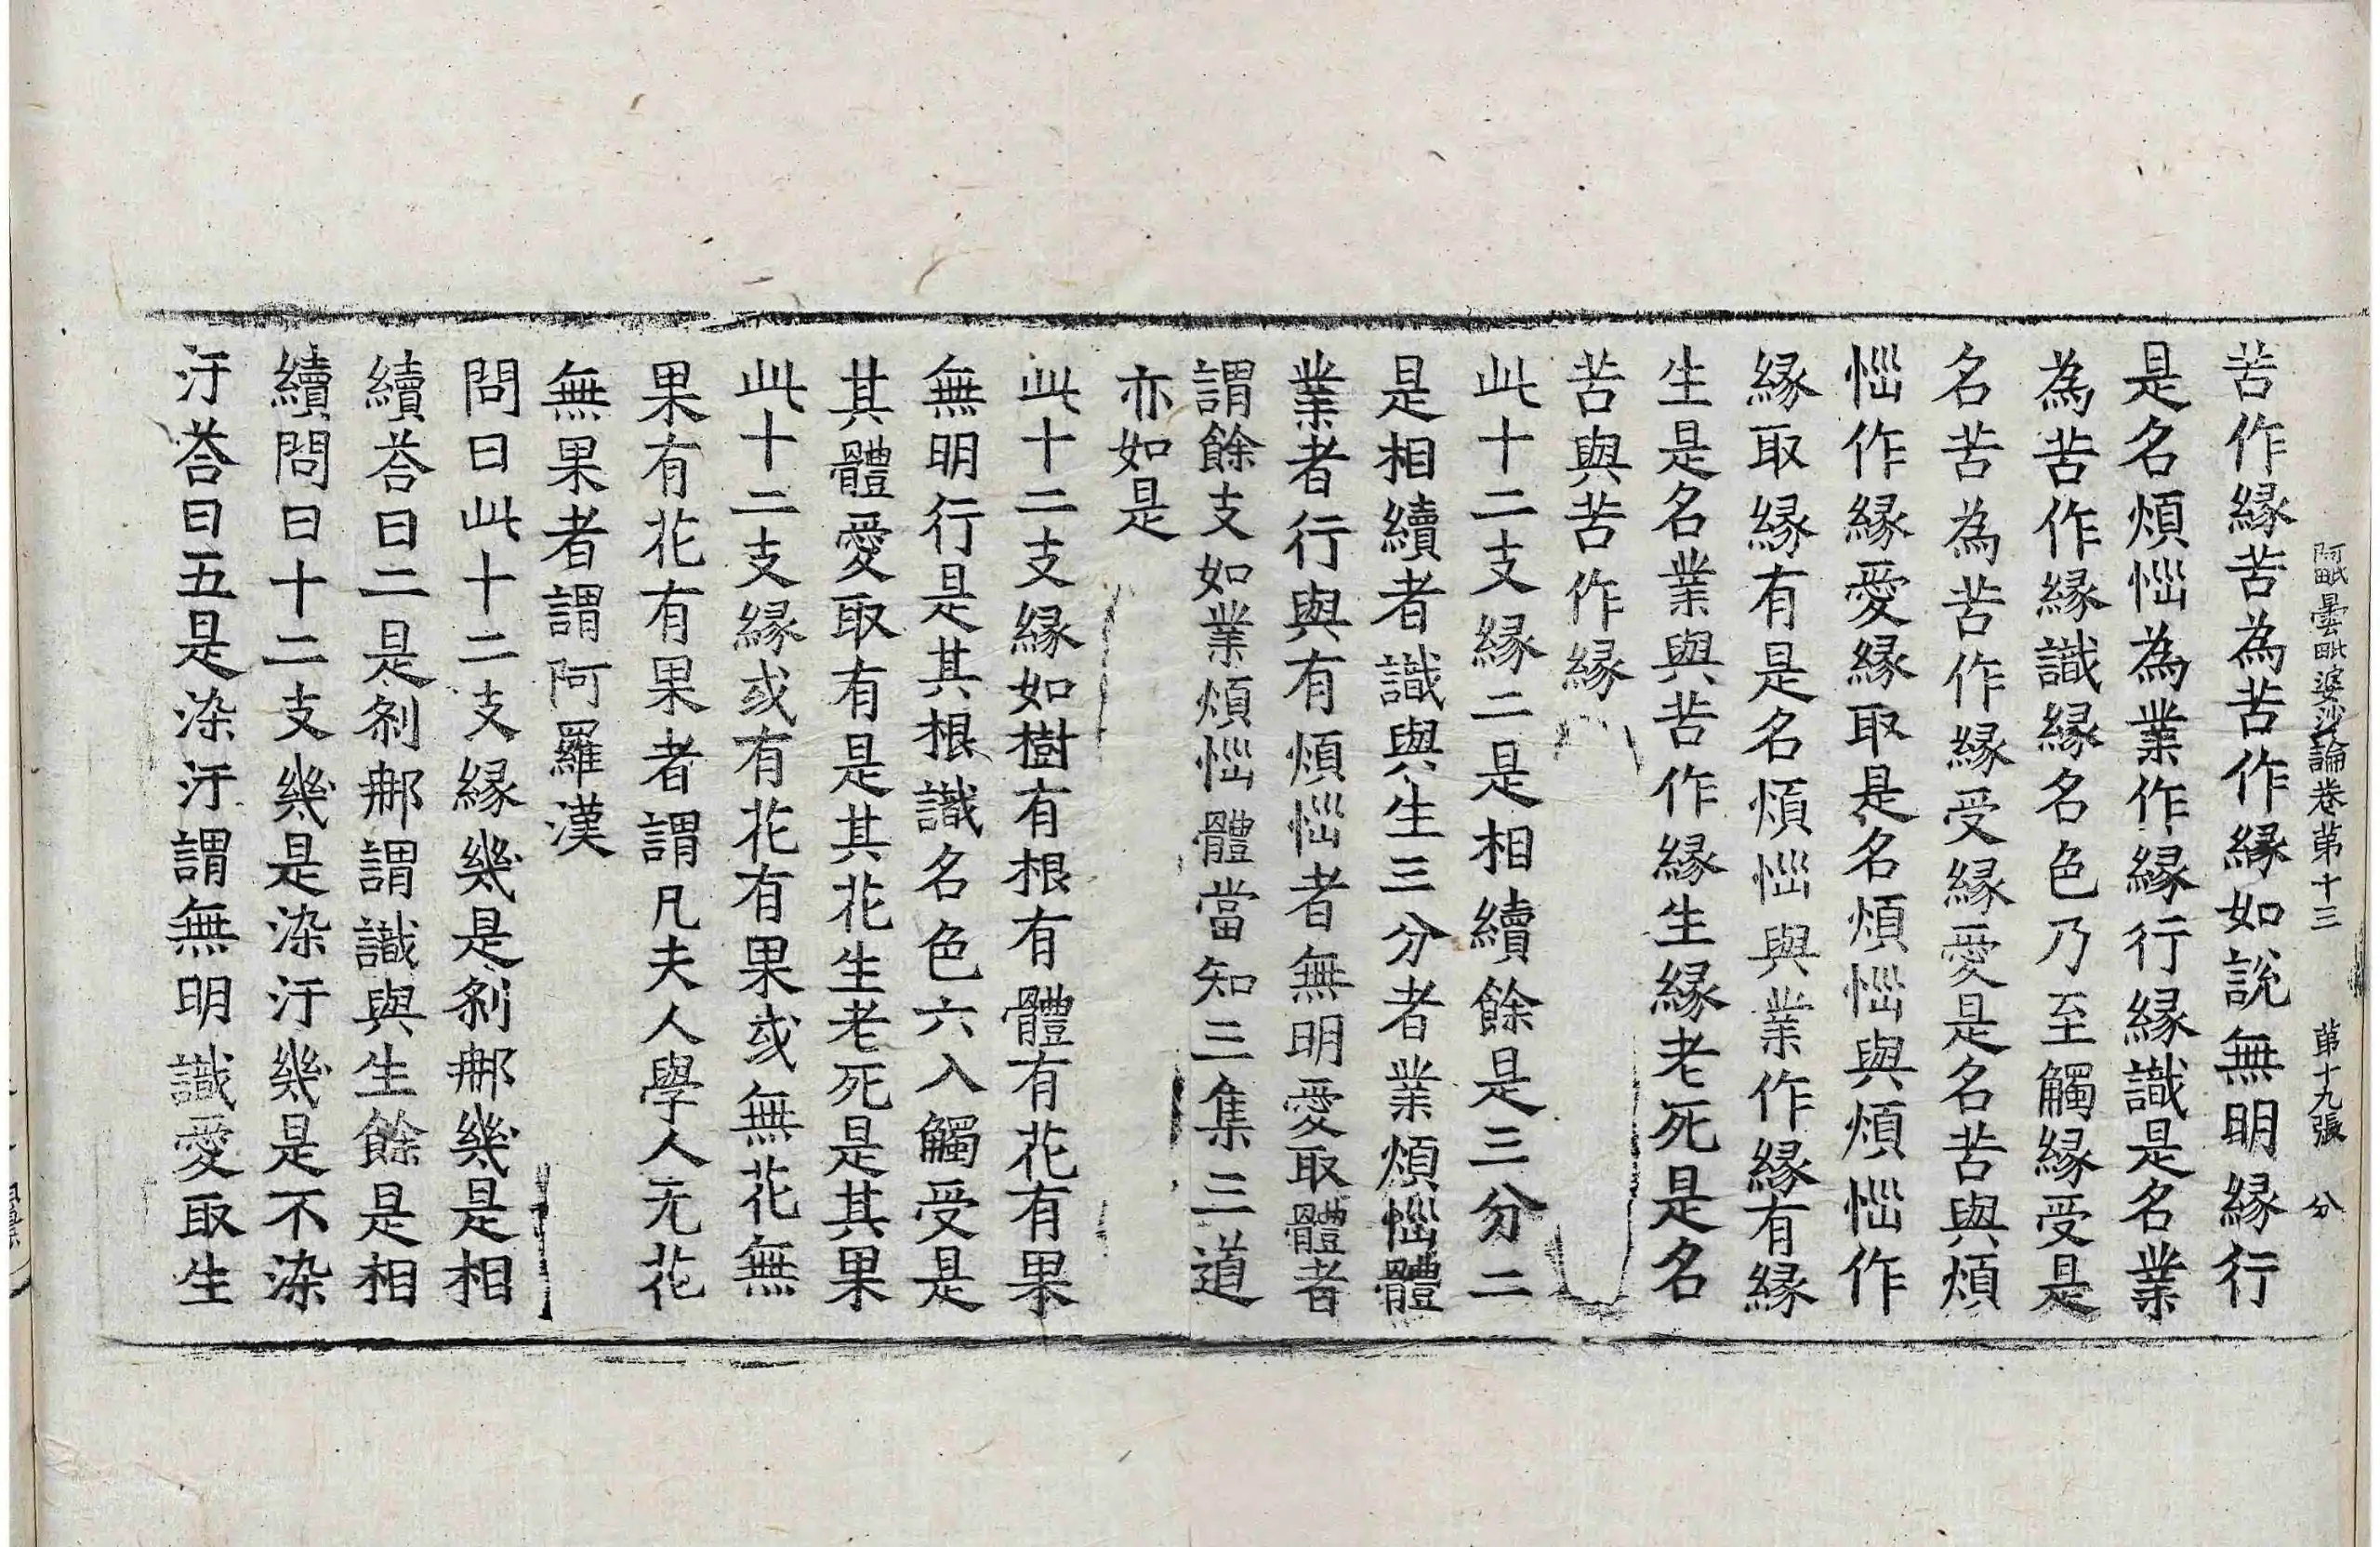 阿毗曇毗婆沙論卷第十三　第十九張　分
苦作縁苦為苦作縁如説無明縁行
是名煩惱為業作縁行縁識是名業
為苦作縁識縁名色乃至觸縁受是
名苦為苦作縁受縁愛是名苦與煩
惱作縁愛縁取是名煩惱與煩惱作
縁取縁有是名煩惱與業作縁有縁
生是名業與苦作縁生縁老死是名
苦與苦作縁
此十二支縁二是相續餘是三分二
是相續者識與生三分者業煩惱體
業者行與有煩惱者無明愛取體者
謂餘支如業煩惱體當知三集三道
亦如是
此十二支縁如樹有根有體有花有果
無明行是其根識名色六入觸受是
其體愛取有是其花生老死是其果
此十二支縁或有花有果或無花無
果有花有果者謂凡夫人學人无花
無果者謂阿羅漢
問曰此十二支縁幾是剎那幾是相
續荅曰二是剎那謂識與生餘是相
續問曰十二支幾是染汙幾是不染
汙荅曰五是染汙謂無明識愛取生